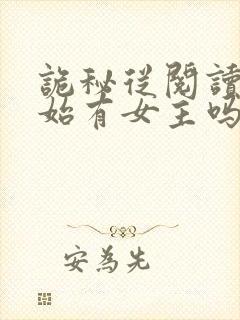 詭秘從閱讀
始有女主嗎
安為先